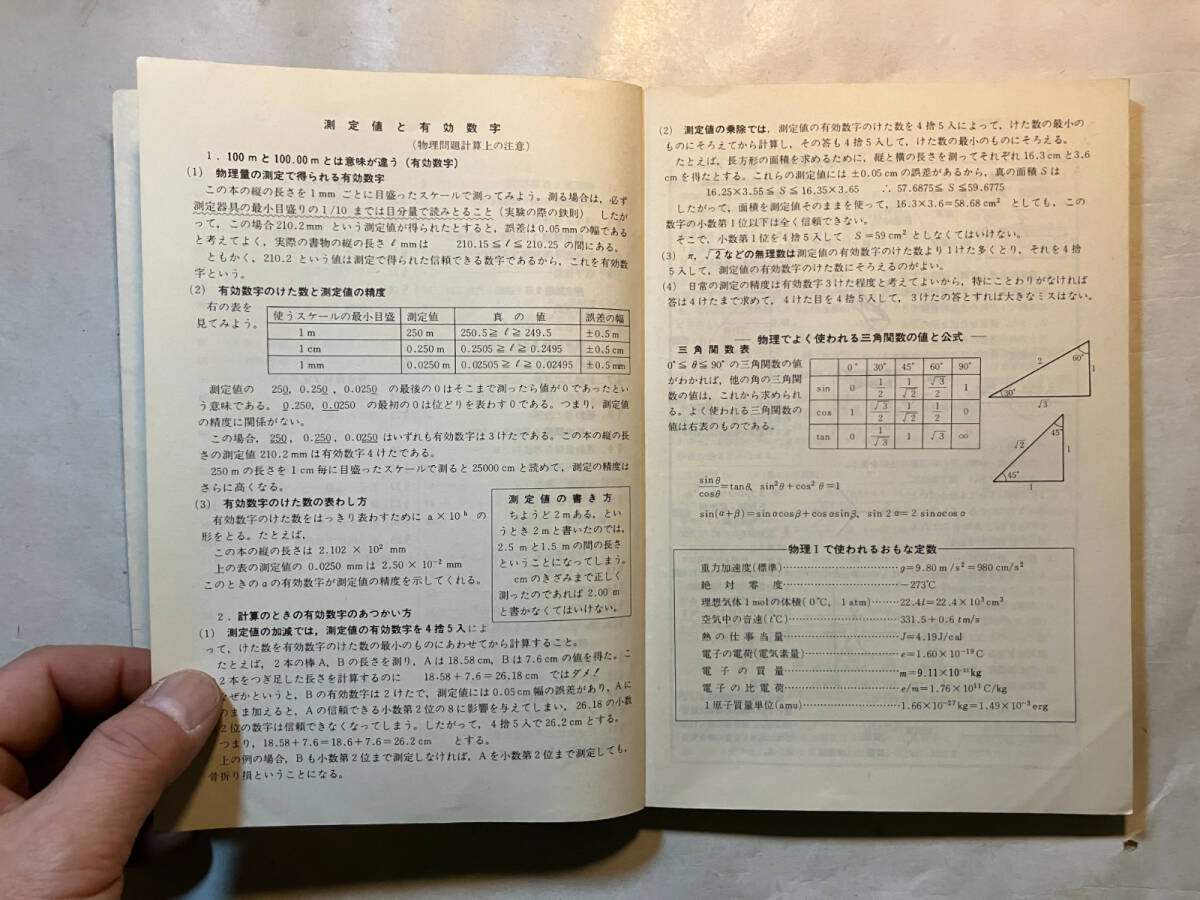 測定値と有効数字
(物理問題計算上の注意)
1．100mと100.00mとは意味が違う(有効数字)
(1) 物理量の測定で得られる有効数字
この本の縦の長さを1mmごとに目盛ったスケールで測ってみよう。測る場合は，必ず
測定器具の最小目盛りの1/10までは目分量で読みとること(実験の際の鉄則) したが
って，この場合210.2mmという測定値が得られたとすると，誤差は0.05mmの幅である
と考えてよく，実際の書物の縦の長さℓmmは 210.15≦ℓ≦210.25の間にある。
ともかく，210.2という値は測定で得られた信頼できる数字であるから，これを有効数
字という。
(2) 有効数字のけた数と測定値の精度
右の表を
見てみよう。
使うスケールの最小目盛 測定値 真の値 誤差の幅
1m 250m 250.5≧ℓ≧249.5 ±0.5m
1cm 0.250m 0.2505≧ℓ≧0.2495 ±0.5cm
1mm 0.0250m 0.02505≧ℓ≧0.02495 ±0.5mm
測定値の 250, 0.250, 0.0250 の最後の0はそこまで測ったら値が0であったとい
う意味である。0.250, 0.0250 の最初の0は位どりを表わす0である。つまり，測定値
の精度に関係がない。
この場合，250, 0.250, 0.0250はいずれも有効数字は3けたである。この本の縦の長
さの測定値210.2mmは有効数字4けたである。
250mの長さを1cm毎に目盛ったスケールで測ると25000cmと読めて，測定の精度は
さらに高くなる。
(3) 有効数字のけた数の表わし方
有効数字のけた数をはっきり表わすために a×10ᵇ の
形をとる。たとえば，
この本の縦の長さは 2.102 × 10² mm
上の表の測定値の 0.0250mmは 2.50 × 10⁻² mm
このときのaの有効数字が測定値の精度を示してくれる。
測定値の書き方
ちょうど2mある，とい
うとき2mと書いたのでは，
2.5mと1.5mの間の長さ
ということになってしまう。
cmのきざみまで正しく
測ったのであれば2.00m
と書かなくてはいけない。
2．計算のときの有効数字のあつかい方
(1) 測定値の加減では，測定値の有効数字を4捨5入によ
って，けた数を有効数字のけた数の最小のものにあわせてから計算すること。
たとえば，2本の棒A，Bの長さを測り，Aは18.58cm，Bは7.6cmの値を得た。こ
2本をつぎ足した長さを計算するのに 18.58+7.6=26.18cm ではダメ！
なぜかというと，Bの有効数字は2けたで，測定値には0.05cm幅の誤差があり，Aに
まま加えると，Aの信頼できる小数第2位の8に影響を与えてしまい，26.18の小数
2位の数字は信頼できなくなってしまう。したがって，4捨5入で26.2cmとする。
つまり，18.58+7.6=18.6+7.6=26.2cm とする。
上の例の場合，Bも小数第2位まで測定しなければ，Aを小数第2位まで測定しても，
骨折り損ということになる。
(2) 測定値の乗除では，測定値の有効数字のけた数を4捨5入によって，けた数の最小の
ものにそろえてから計算し，その答も4捨5入して，けた数の最小のものにそろえる。
たとえば，長方形の面積を求めるために，縦と横の長さを測ってそれぞれ16.3cmと3.6
cmを得たとする。これらの測定値には±0.05cmの誤差があるから，真の面積Sは
16.25×3.55≦S≦16.35×3.65 ∴ 57.6875≦S≦59.6775
したがって，面積を測定値そのままを使って，16.3×3.6=58.68cm² としても，この
数字の小数第1位以下は全く信頼できない。
そこで，小数第1位を4捨5入して S=59cm² としなくてはいけない。
(3) π，√2などの無理数は測定値の有効数字のけた数より1けた多くとり，それを4捨
5入して，測定値の有効数字のけた数にそろえるのがよい。
(4) 日常の測定の精度は有効数字3けた程度と考えてよいから，特にことわりがなければ
答は4けたまで求めて，4けた目を4捨5入して，3けたの答とすれば大きなミスはない。
物理でよく使われる三角関数の値と公式
三角関数表
0°≦θ≦90°の三角関数の値
がわかれば，他の角の三角関
数の値は，これから求められ
る。よく使われる三角関数の
値は右表のものである。
0° 30° 45° 60° 90°
sin 0 1/2 1/√2 √3/2 1
cos 1 √3/2 1/√2 1/2 0
tan 0 1/√3 1 √3 ∞
2 60° 1 30° √3
√2 45° 1 45° 1
sinθ/cosθ=tanθ, sin²θ+cos²θ=1
sin(α+β)=sinαcosβ+cosαsinβ, sin2α=2sinαcosα
物理Ⅰで使われるおもな定数
重力加速度(標準)……g=9.80m/s²=980cm/s²
絶対零度……−273℃
理想気体1molの体積(0℃, 1atm)……22.4l=22.4×10³cm³
空気中の音速(t℃)……331.5+0.6t m/s
熱の仕事当量……J=4.19J/cal
電子の電荷(電気素量)……e=1.60×10⁻¹⁹C
電子の質量……m=9.11×10⁻³¹kg
電子の比電荷……e/m=1.76×10¹¹C/kg
1原子質量単位(amu)……1.66×10⁻²⁷kg=1.49×10⁻³erg